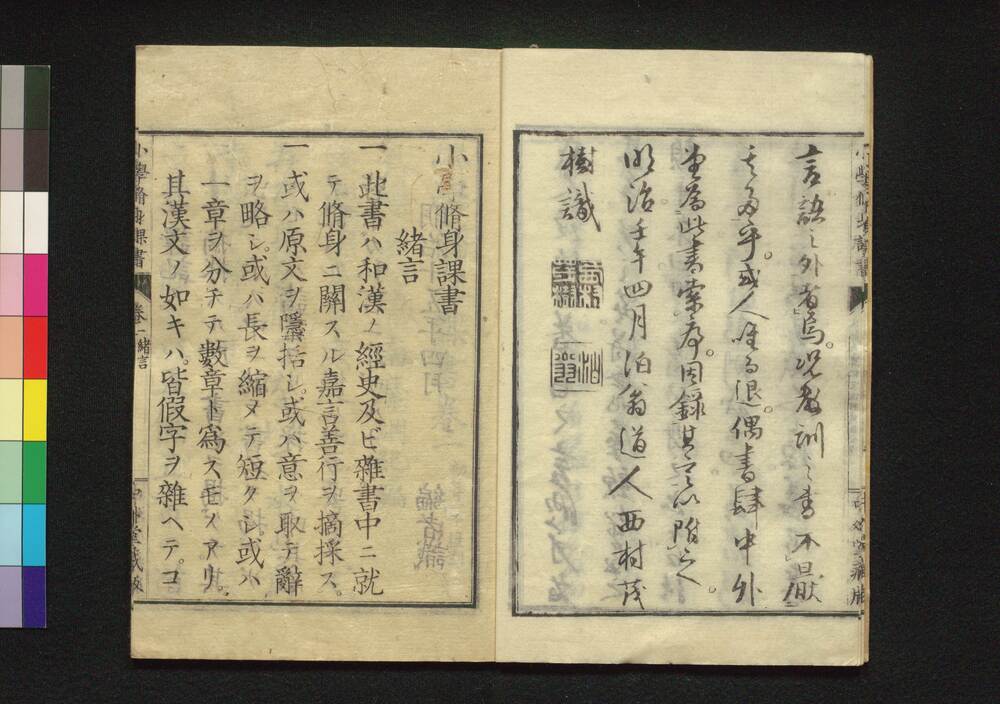 言語之外者焉。況教訓之書不厭
其多乎。或人唯而退。偶書肆中外
堂為此書索序。因錄其言以附之。
明治壬午四月泊翁道人西村茂
樹識
小學脩身課書
緒言
一 此書ハ和漢ノ經史及ビ雜書中ニ就
テ脩身ニ關スル嘉言善行ヲ摘採ス。
一 或ハ原文ヲ隱括シ。或ハ意ヲ取テ辭
ヲ略シ。或ハ長ヲ縮メテ短クシ。或ハ
一章ヲ分チテ數章ト爲スモノアリ。
其漢文ノ如キハ。皆假字ヲ雜ヘテ。コ
小學脩身課書
卷一緒言